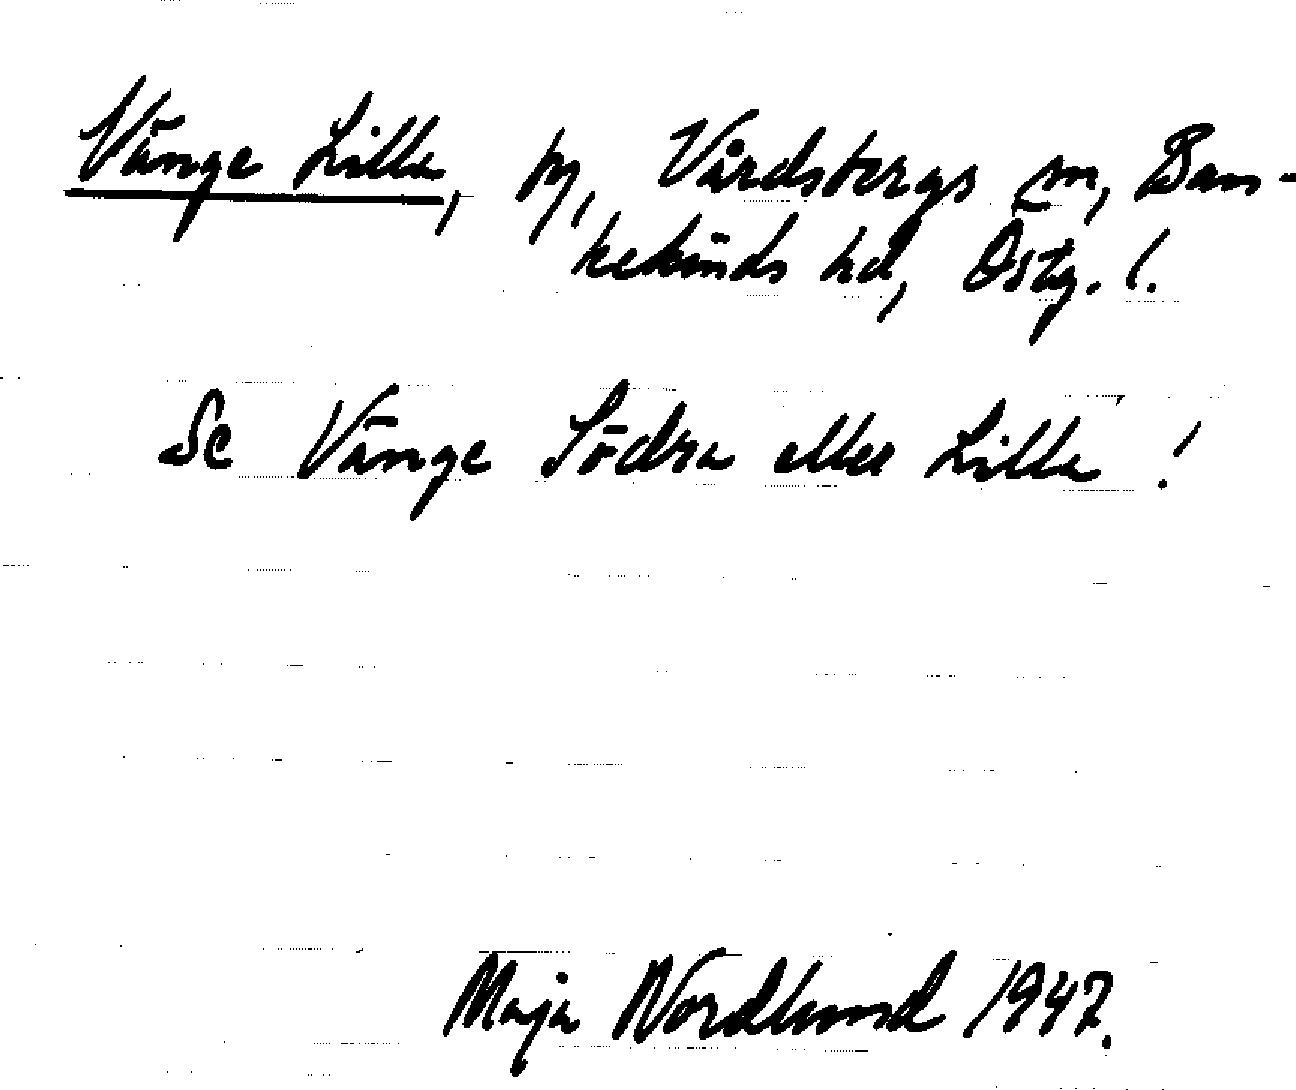 Vänge Lilla, by, Vårdsbergs sn, Ban-
kekinds hd, Östg. l.
Se Vänge Södra eller Lilla!
Maja Nordlund 1947.